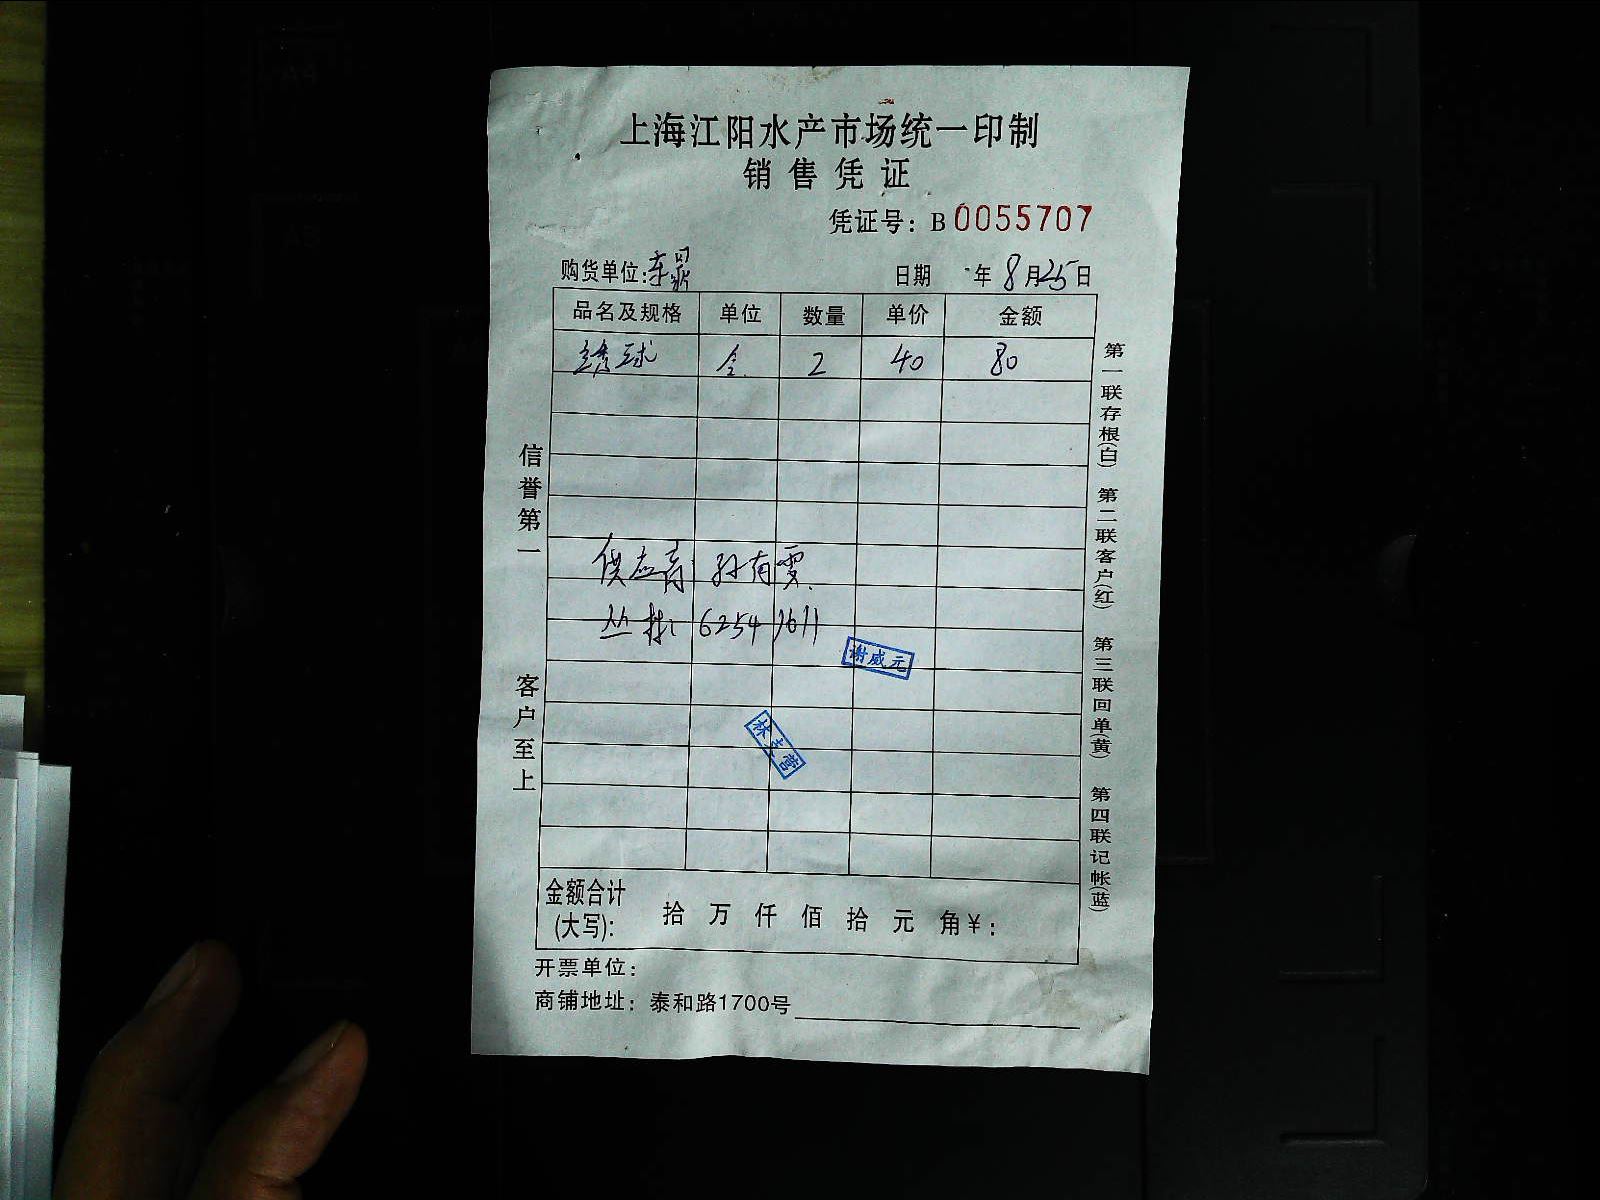 上海江阳水产市场统一印制
销售凭证
凭证号：B 0055707
购货单位：东
日期 年 8 月 25 日
品名及规格 单位 数量 单价 金额
绣球 2 40 80
供应商 孙有雯
丛林: 6254 1611
谢威元
林
金额合计(大写)： 拾 万 仟 佰 拾 元 角 ￥：
开票单位：
商铺地址：泰和路1700号
信誉第一 客户至上
第一联存根(白) 第二联客户(红) 第三联回单(黄) 第四联记帐(蓝)